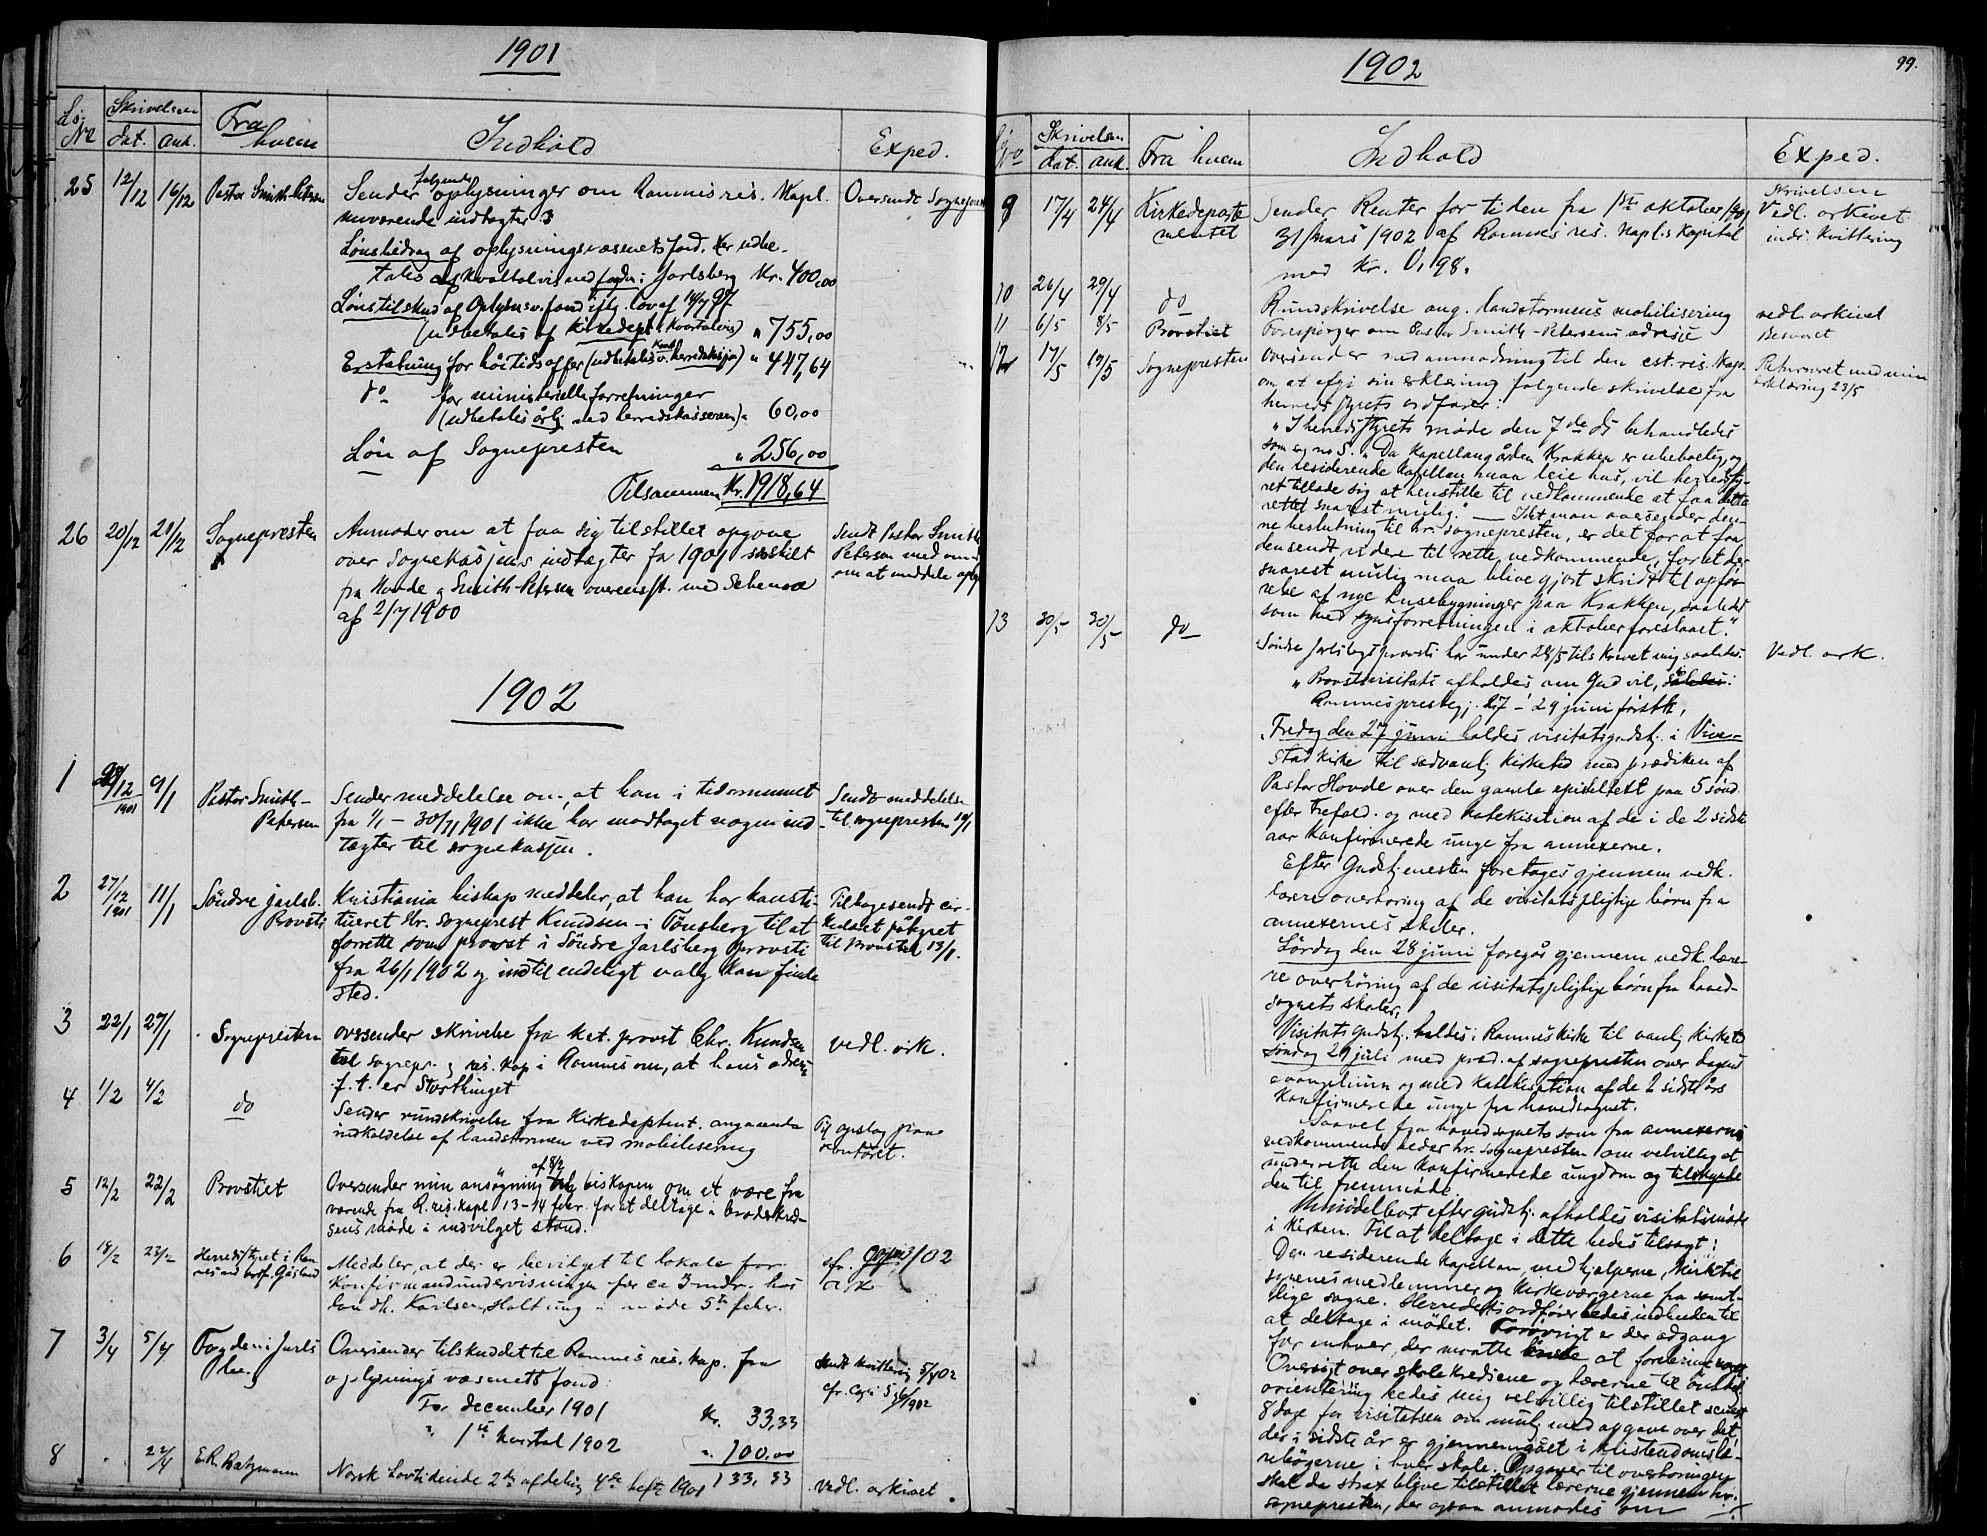 1901
Lø.
No
Skrivelsen
dat. ank.
Fra
hvem
Indhold
Exped.
25 12/12 16/12 Pastor Smith-Petersen
Sender følgende oplysninger om Ramnes res. Kapl.
nuværende indtægter:
Oversendt Sognepresten
Lønsbidrag af oplysningsvæsenets fond. udbe-
tales kvartalvis ved fogden i Jarlsberg Kr. 400,00
Lønstilskud af Oplysnsv. fond iflg. lov af 14/7 97
(udbetales af Kirkedept. Kvartalvis) " 755,00
Erstatning for høitidsoffer (udbetales v. herredskassen) " 447,64
do for ministerielle forretninger
(udbetales årlig ved herredskasseren) " 60,00
Løn af Sognepresten " 256,00
Tilsammen Kr. 1918,64
26 20/12 21/12 Sognepresten
Anmoder om at faa sig tilstillet opgave
over Sognekassens indtægter for 1901 særskilt
fra Hovde og Smith-Petersen overensst. med Schema
af 2/7 1900
Sendt Pastor Smith
Petersen med anm.
om at meddele opl.
1902
1 28/12 1901 9/1 Pastor Smith-
Petersen
Sender meddelelse om, at han i tidsrummet
fra 1/1 – 30/11 1901 ikke har modtaget nogen ind-
tægter til sognekassen.
Sendt meddelelse
til sognepresten 19/1
2 27/12 1901 11/1 Søndre Jarlsb.
Provsti
Kristiania biskop meddeler, at han har konsti-
tueret Hr. sogneprest Knudsen i Tønsberg til at
forrette som provst i Søndre Jarlsberg provsti
fra 26/1 1902 og indtil endeligt valg kan finde
sted.
Tilbagesendt cir-
kulæret påtegnet
til provstiet 13/1.
3 22/1 27/1 Sognepresten
oversender skrivelse fra kst. provst Chr. Knudsen
til sognepr. og res. kap i Ramnes om, at hans adresse
f. t. er Storthinget
vedl. ark.
4 1/2 4/2 do
Sender rundskrivelse fra Kirkedeptmt. angaaende
indkaldelse af landstormen ved mobilisering
Til opslag paa
kontoret.
5 12/2 22/2 Provstiet
Oversender min ansøgning af 8/2 til biskopen om at være fra
værende fra R. res. kapl 13–14 febr. for at deltage i broderkred-
sens møde i indvilget stand.
6 18/2 23/2 Herredstyret i Ram
nes ved ordf. Gåsland
Meddeler, at der er bevilget til lokale for
konfirmandundervisningen for ca 3 mdr. hos
landh. Karlsen, Holtung i møde 5te febr.
cfr. 3/02
7 3/4 5/4 Fogden i Jarls
Oversender tilskuddet til Ramnes res. kap. fra
oplysningsvæsenets fond:
For december 1901 Kr. 33,33
" 1ste kvartal 1902 " 100,00
133,33
Sendt kvittering 5/4 02
8 " 22/4 E.R. Batzmann
Norsk Lovtidende 2den afdeling 4de hefte 1901
vedl. arkivet
1902
99.
Lø
No
Skrivelsen
dat. ank.
Fra hvem
Indhold
Exped.
9 17/4 24/4 Kirkedeparte
mentet
Sender Renter for tiden fra 1ste oktober 1901
31 mars 1902 af Ramnes res. Kapl.s Kapital
med Kr. 0,98.
Skrivelsen
Vedl. arkivet
inds. Kvittering
10 26/4 29/4 do
Rundskrivelse ang. landstormens mobilisering
vedl. arkivet
11 6/5 8/5 Provstiet
Forespørger om Pastor Smith-Petersens adresse
Besvaret
12 17/5 19/5 Sognepresten
Oversender med anmodning til den cst. res. Kap.
om at afgi sin erklæring følgende skrivelse fra
herredsstyrets ordfører:
Returneret med min
erklæring 23/5
"I herredsstyrets møde den 7de ds behandledes
som sag no 5. "Da Kapellangården Krakken er ubeboelig, og
den residerende kapellan maa leie hus, vil herredssty-
ret tillade sig at henstille til vedkommende at faa dette
rettet snarest mulig." — Idet man oversender den-
ne beslutning til hr. sognepresten, er det for at faa
den sendt videre til rette vedkommende, for at der
snarest mulig maa blive gjort skridt til opfør-
relse af nye husebygninger paa Krakken, saaledes
som ved synsforretningen i oktober foreslaaet."
13 30/5 30/5 do
Søndre Jarlsbergs provsti har under 28/5 tilskrevet mig saaledes:
"Provstevisitats afholdes om Gud vil, således:
Ramnes prestegj. 27 – 29 juni førstk.
Vedl. ark.
Fredag den 27 juni holdes visitatsgudstj. i Vive-
stad kirke til sedvanlig kirketid med prædiken af
Pastor Hovde over den gamle episteltekst paa 5 sønd.
efter Trefold. og med katekisation af de i de 2 sidste
aar konfirmerede unge fra annexerne.
Efter Gudstjenesten foretages gjennem vedk.
lærere overhøring af de visitatspligtige børn fra
annexernes skoler.
Lørdag den 28 juni foregår gjennem vedk. lære-
re overhøring af de visitatspligtige børn fra hoved-
sognets skoler.
Visitatsgudstj. holdes i Ramnes kirke til vanlig kirketid
søndag 29 juli med præd. af sognepresten over dagens
evangelium og med katekisation af de 2 sidste års
konfirmerede unge fra hovedsognet.
Saavel fra hovedsognets som fra annexernes
vedkommende beder hr. sognepresten om velvilligst
underrette den konfirmerede ungdom og tilskynde
den til fremmøde.
Umiddelbart efter gudstj. afholdes visitatsmøde
i kirken. Til at deltage i dette bedes tilsagt:
Den residerende kapellan, medhjelperne, kirketil
synesmedlemmer og kirkeværgerne fra samt-
lige sogne. Herredets ordfører bedes indbuden til
at deltage i mødet. Forøvrigt er der adgang
for enhver, der måtte ønske at forebringe noget
Oversigt over skolekredsene og lærerne til ønskelig
orientering bedes mig velvillig tilstillet senest
8 dage før visitatsen om mulig med opgave over det
der i sidste år er gjennemgået i kristendomslæ-
rebøgerne i hver skole. Opgaver til overhøringen
skal da strax blive tilstillet lærerne gjennem hr.
sognepresten, der ogsaa anmodes om